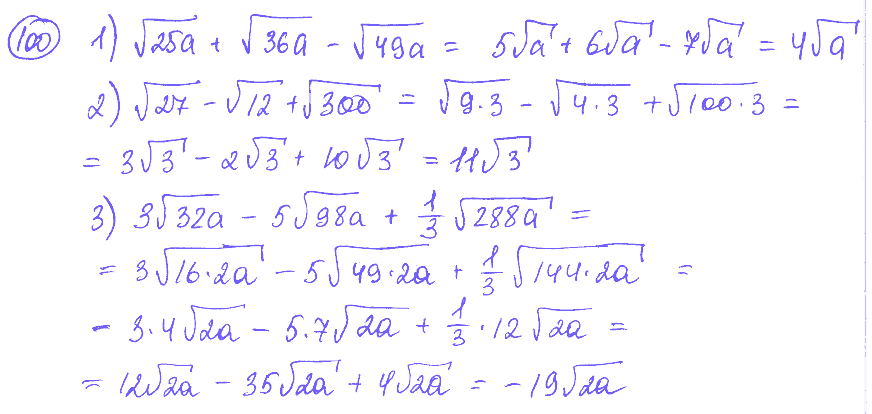 100 1) √25a + √36a − √49a = 5√a + 6√a − 7√a = 4√a
2) √27 − √12 + √300 = √9·3 − √4·3 + √100·3 =
= 3√3 − 2√3 + 10√3 = 11√3
3) 3√32a − 5√98a + 1/3 √288a =
= 3√16·2a − 5√49·2a + 1/3 √144·2a =
− 3·4√2a − 5·7√2a + 1/3 · 12√2a =
= 12√2a − 35√2a + 4√2a = −19√2a